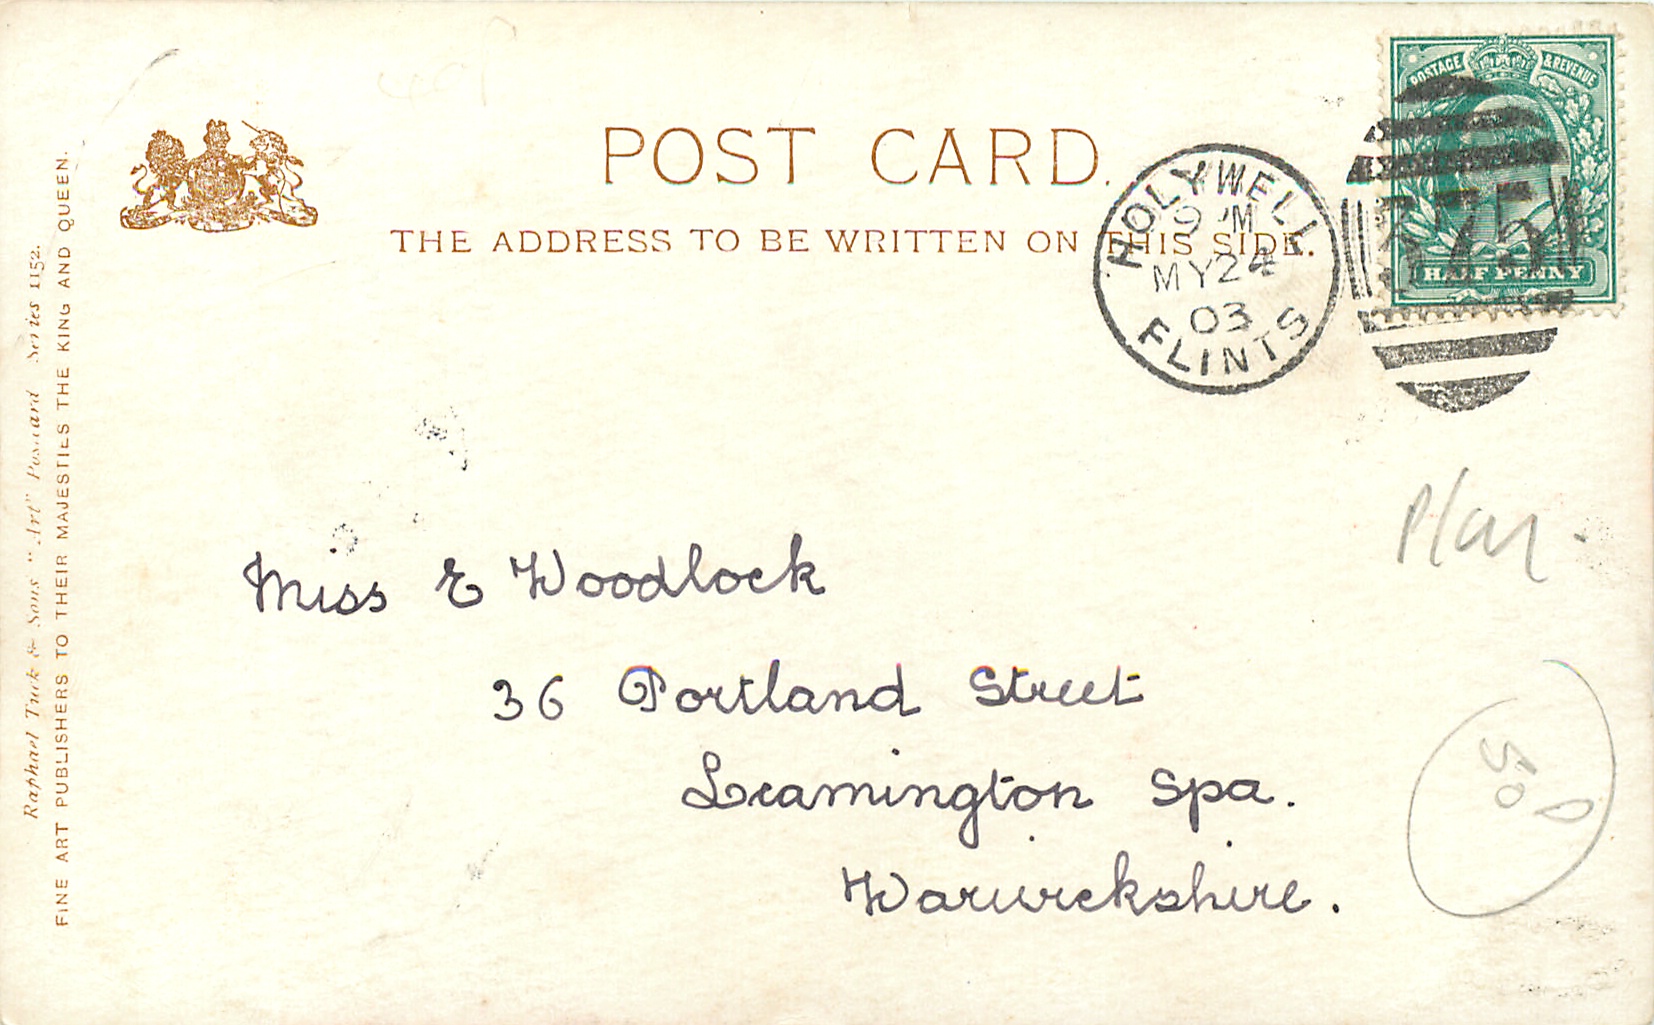 POST CARD.
THE ADDRESS TO BE WRITTEN ON THIS SIDE.
Raphael Tuck & Sons "Art" Postcard Series 1152.
FINE ART PUBLISHERS TO THEIR MAJESTIES THE KING AND QUEEN.
HOLYWELL
9 PM
MY 24
03
FLINTS
POSTAGE & REVENUE
HALF PENNY
Miss E Woodlock
36 Portland Street
Leamington Spa.
Warwickshire.
50